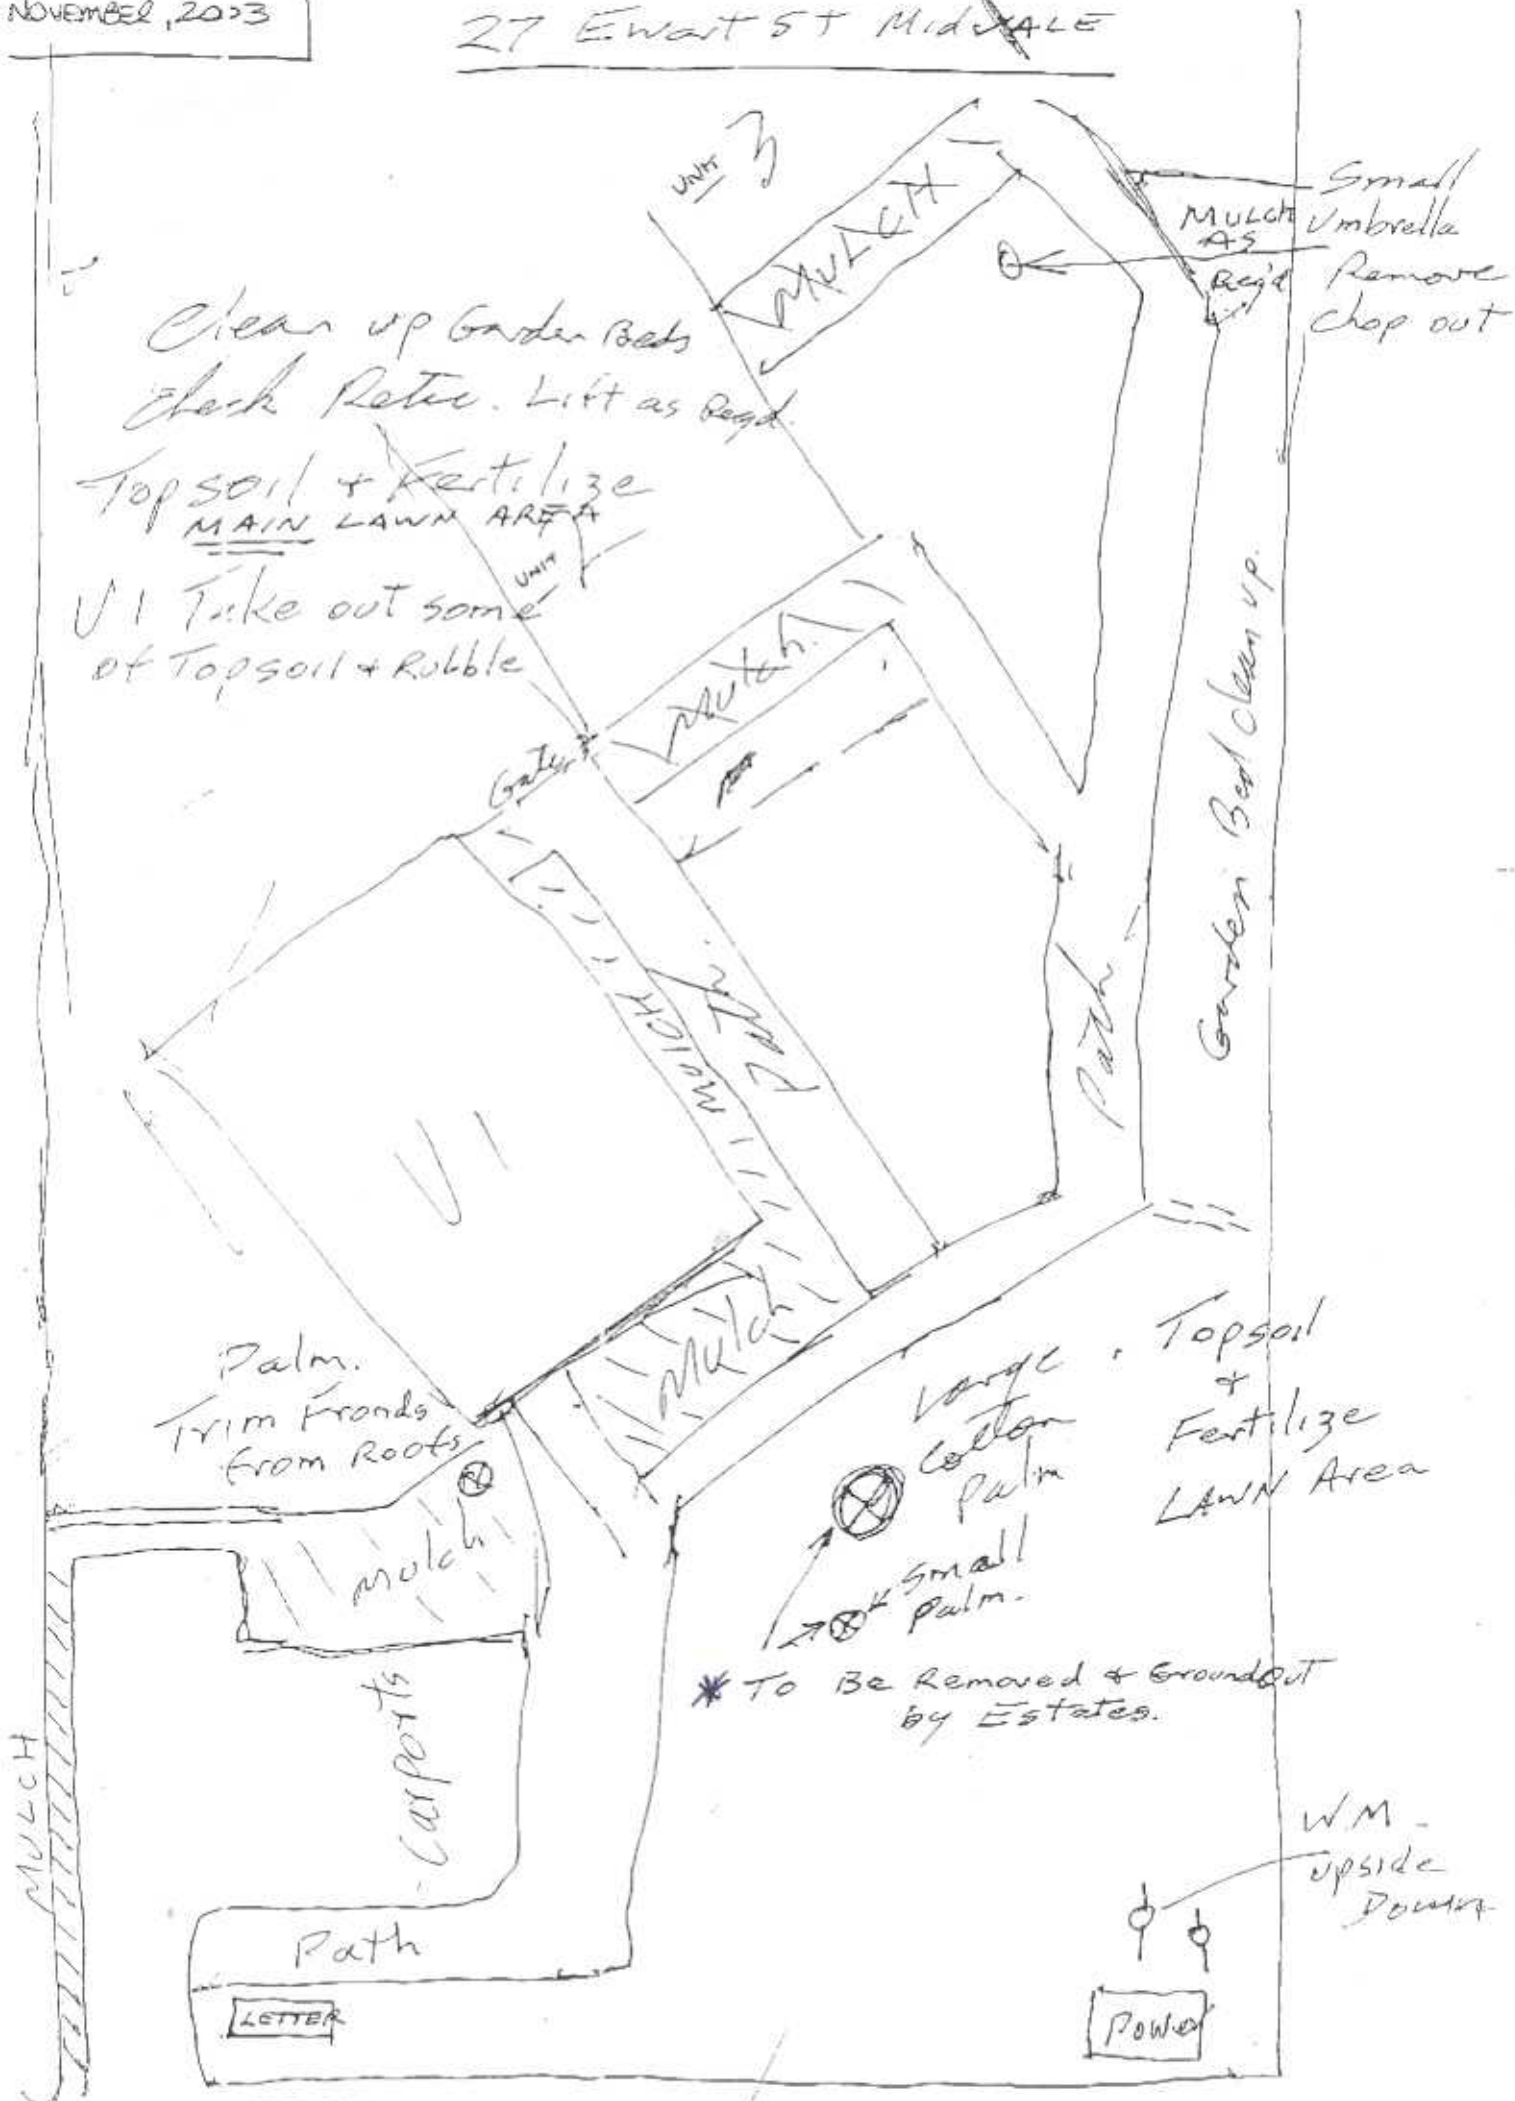 NOVEMBER, 2003
27 Ewart St MidVALE
UNIT 3
MULCH
Small
Umbrella
Remove
Chop out
MULCH
AS
Req'd
Clean up Garden Beds
Check Retic. Lift as Reqd.
Topsoil + Fertilize
MAIN LAWN AREA
UNIT 2
U1 Take out some
of Topsoil & Rubble
Mulch.
Gate
Garden Bed Clean up.
MULCH
Path.
Path
U1
Mulch
Palm.
Trim Fronds
from Roots
Mulch
Large
Cotton
Palm
Topsoil
+
Fertilize
LAWN Area
Small
Palm.
* To Be Removed & Ground Out
by Estates.
Carports
MULCH
W.M -
upside
Down
Path
LETTER
Power